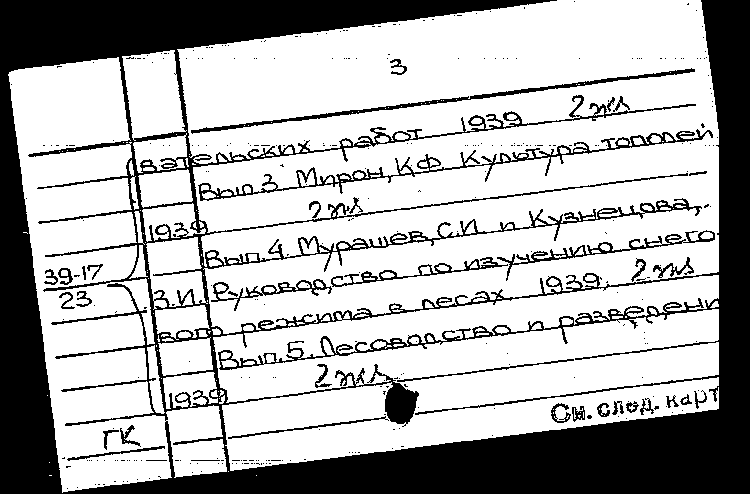 3
вательских работ 1939 2 экз
Вып.3. Мирон, К.Ф. Культура тополей
1939 2 экз
Вып.4. Мурашев, С.И. и Кузнецова,
39-17
23
З.И. Руководство по изучению снего-
вого режима в лесах 1939. 2 экз
Вып.5. Лесоводство и разведени
1939 2 экз
ГК
См. след. карт